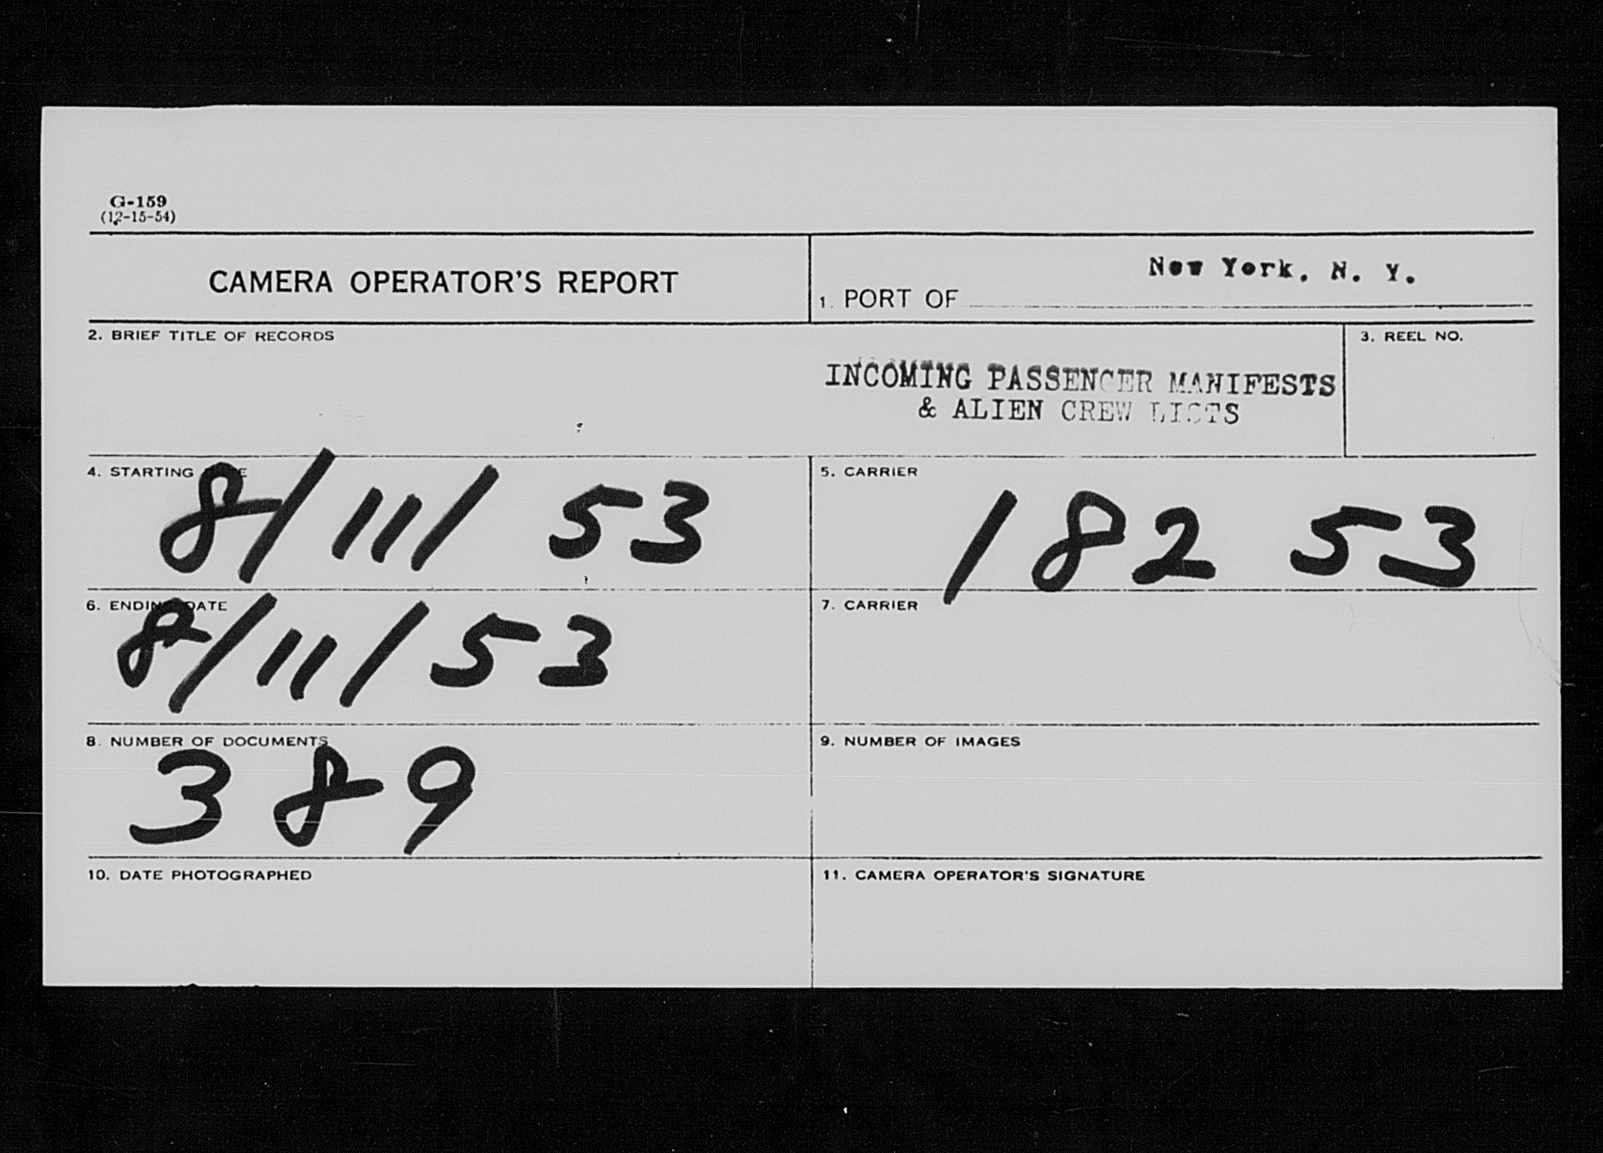 G-159
(12-15-54)
CAMERA OPERATOR'S REPORT
New York, N. Y.
1. PORT OF
2. BRIEF TITLE OF RECORDS
INCOMING PASSENGER MANIFESTS
& ALIEN CREW LISTS
3. REEL NO.
4. STARTING DATE
8/11/53
5. CARRIER
18253
6. ENDING DATE
8/11/53
7. CARRIER
8. NUMBER OF DOCUMENTS
389
9. NUMBER OF IMAGES
10. DATE PHOTOGRAPHED
11. CAMERA OPERATOR'S SIGNATURE